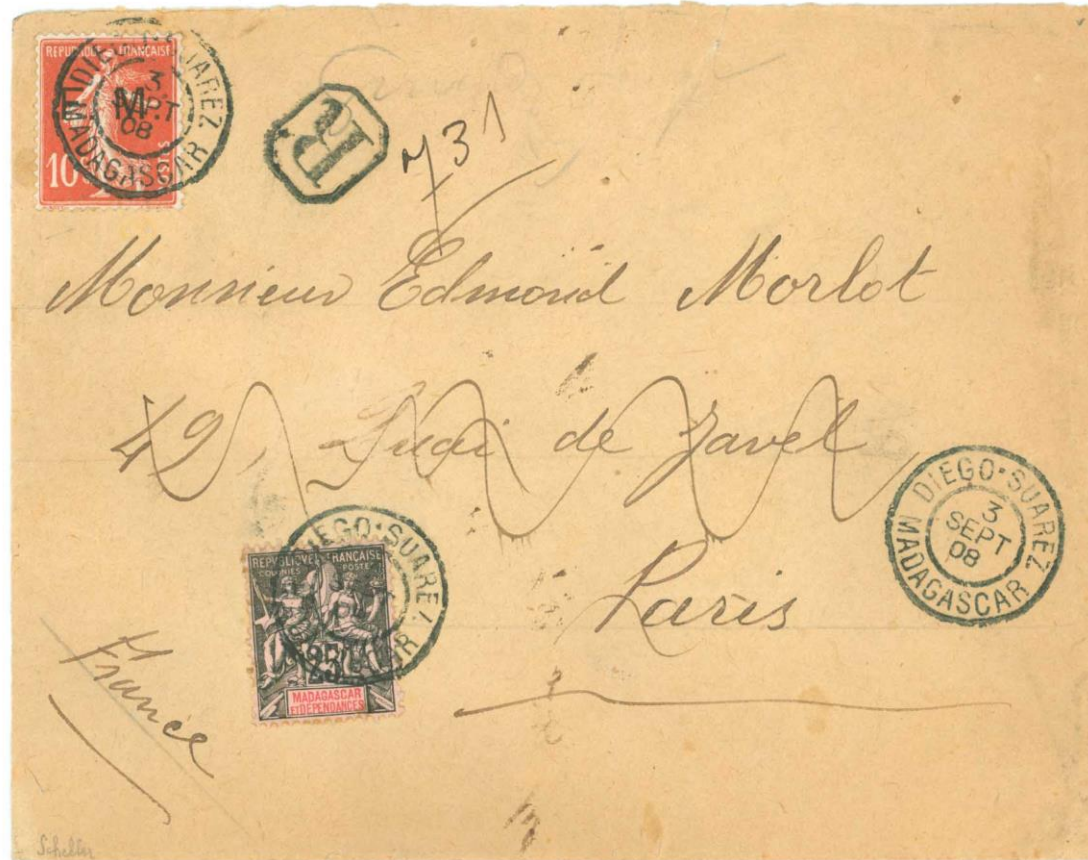 REPUBLIQUE FRANÇAISE
F.M.
10
DIEGO·SUAREZ
3
SEPT
08
MADAGASCAR
R
731
Monsieur Edmond Morlot
42, Quai de Javel
Paris
DIEGO·SUAREZ
3
SEPT
08
MADAGASCAR
DIEGO·SUAREZ
REPUBLIQUE FRANÇAISE
COLONIES POSTE
25
MADAGASCAR
ET DÉPENDANCES
France